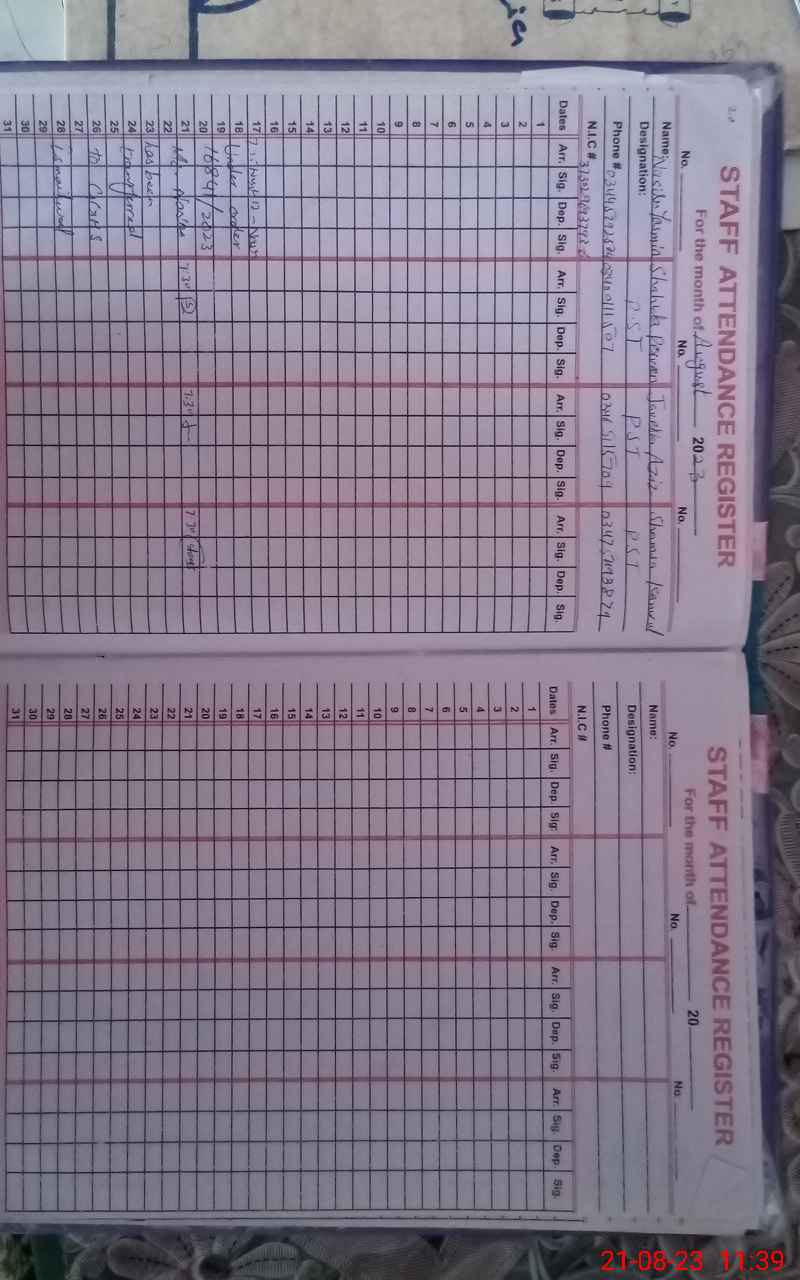 STAFF ATTENDANCE REGISTER
For the month of August 2023
No. No. No.
Name: Yasmin Shahida Perveen Javedia Aziz Shamim
Designation: P.S.T P.S.T P.S.T
Phone #
N.I.C #
Dates Arr. Sig. Dep. Sig. Arr. Sig. Dep. Sig. Arr. Sig. Dep. Sig. Arr. Sig. Dep. Sig.
1
2
3
4
5
6
7
8
9
10
11
12
13
14
15
16
17
18 Under order
19
20 16841/2023
21 7:30 7:30 7:30
22
23 has been
24 transferred
25
26 to GGHS
27
28
29
30
31
STAFF ATTENDANCE REGISTER
For the month of 20
No. No. No.
Name:
Designation:
Phone #
N.I.C #
Dates Arr. Sig. Dep. Sig. Arr. Sig. Dep. Sig. Arr. Sig. Dep. Sig. Arr. Sig. Dep. Sig.
1
2
3
4
5
6
7
8
9
10
11
12
13
14
15
16
17
18
19
20
21
22
23
24
25
26
27
28
29
30
31
21-08-23 11:39